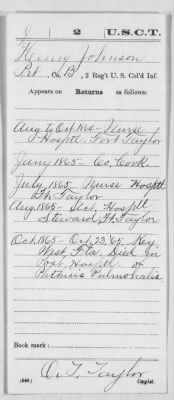 J 2 U.S.C.T.
Henry Johnson
Pvt, Co. B, 2 Reg't U. S. Col'd Inf.
Appears on
Returns as follows:
Aug to Oct. 1864 - Nurse
Hosptl. Fort Taylor
Jany 1865 - Co. Cook
July 1865 - Nurse Hosptl
Ft. Taylor
Aug 1865 - Act. Hosptl
Steward Ft. Taylor
Oct. 1865 - Oct. 22, '65, Key
West, Fla. Died in
Post Hosptl of
Phthisis Pulmonalis.
Book mark:
O. T. Taylor
(546) Copyist.